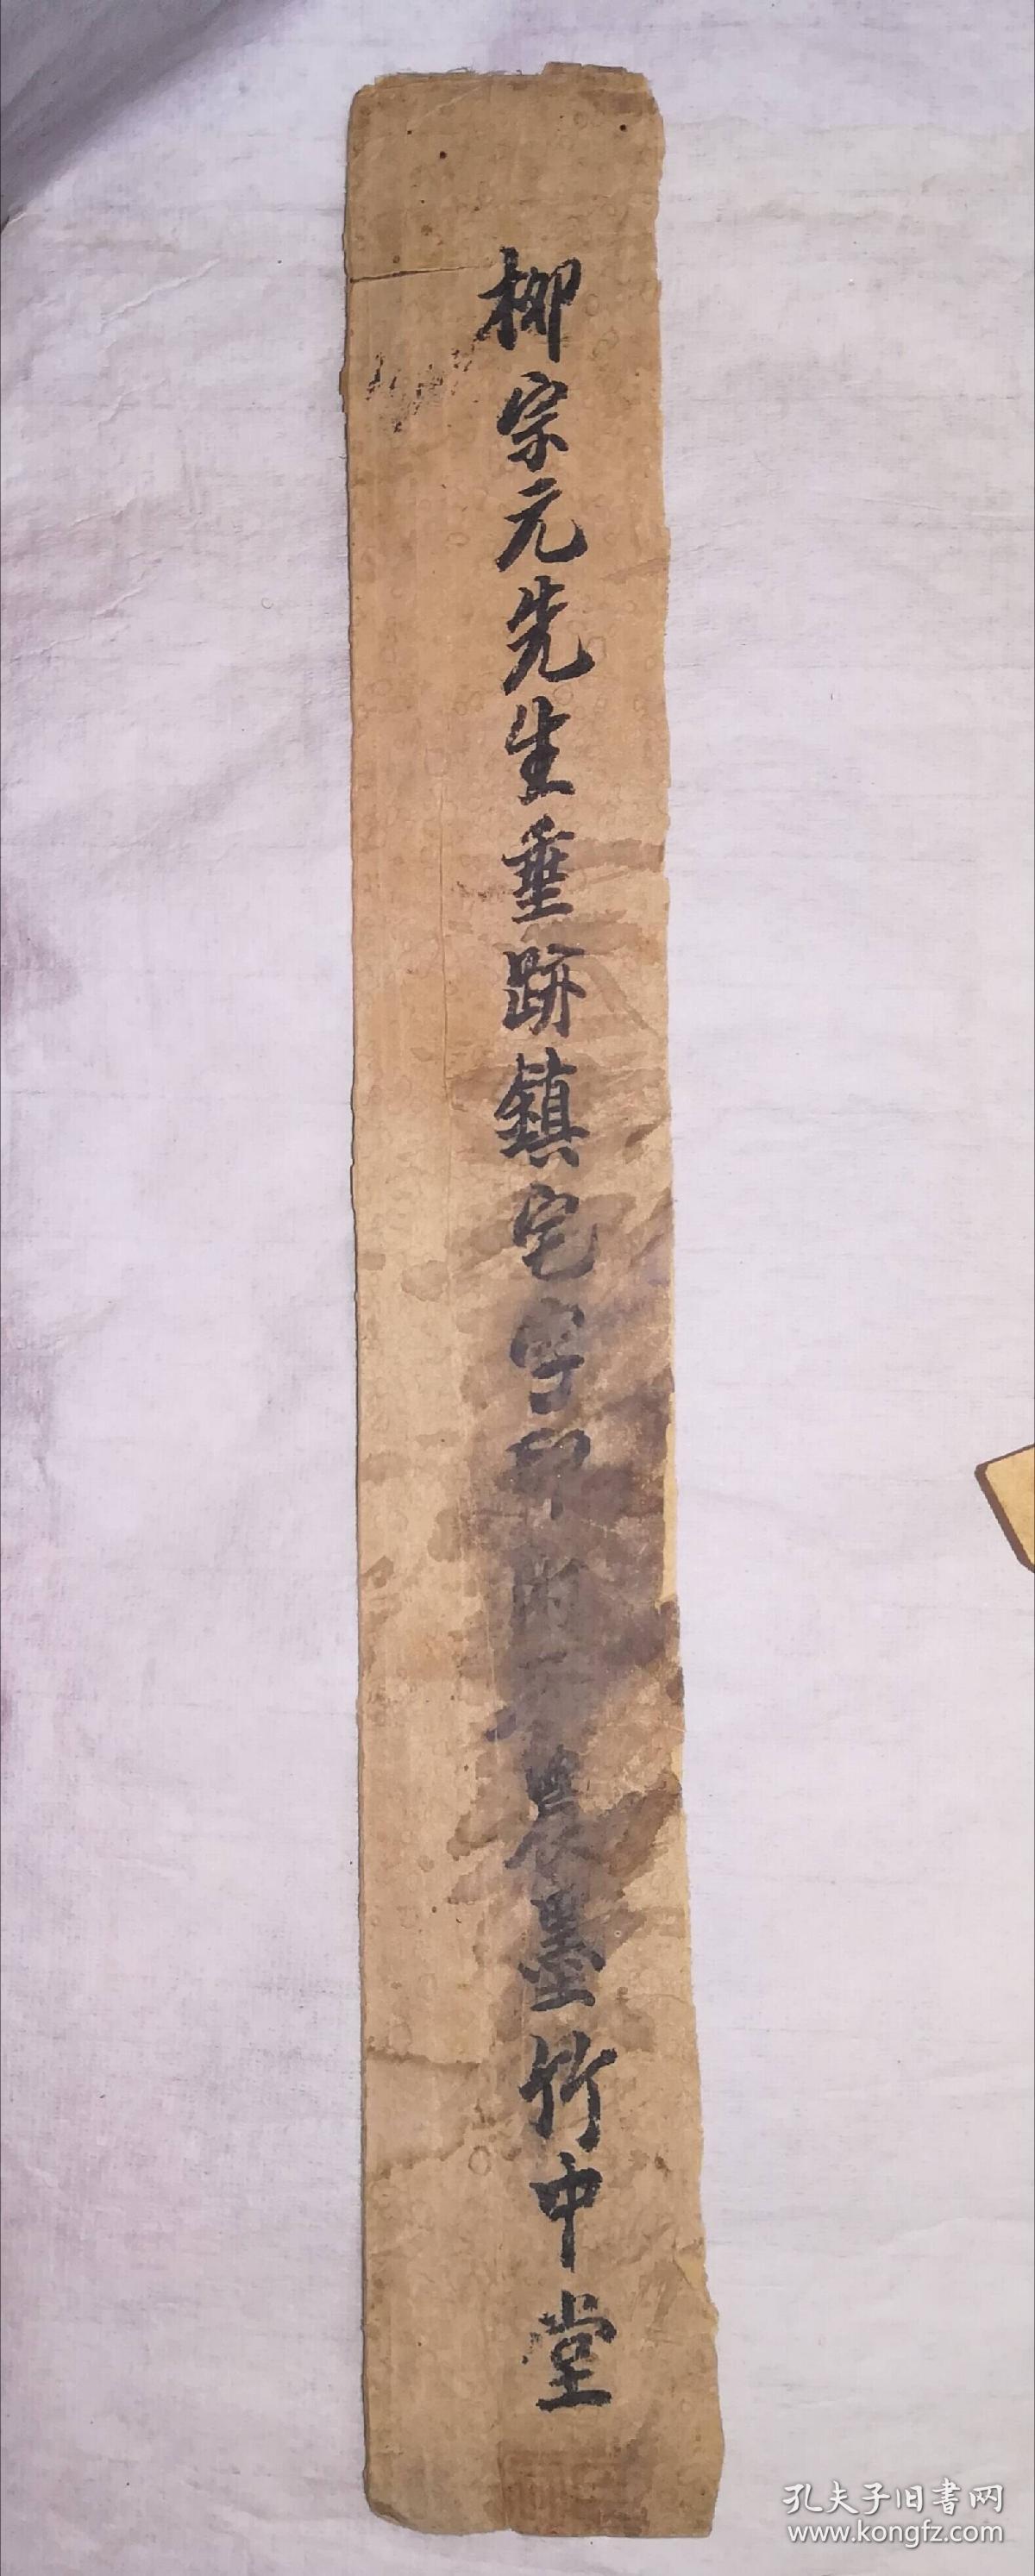 柳宗元先生垂跡鎮宅字印
墨竹中堂
孔夫子旧書网
www.kongfz.com